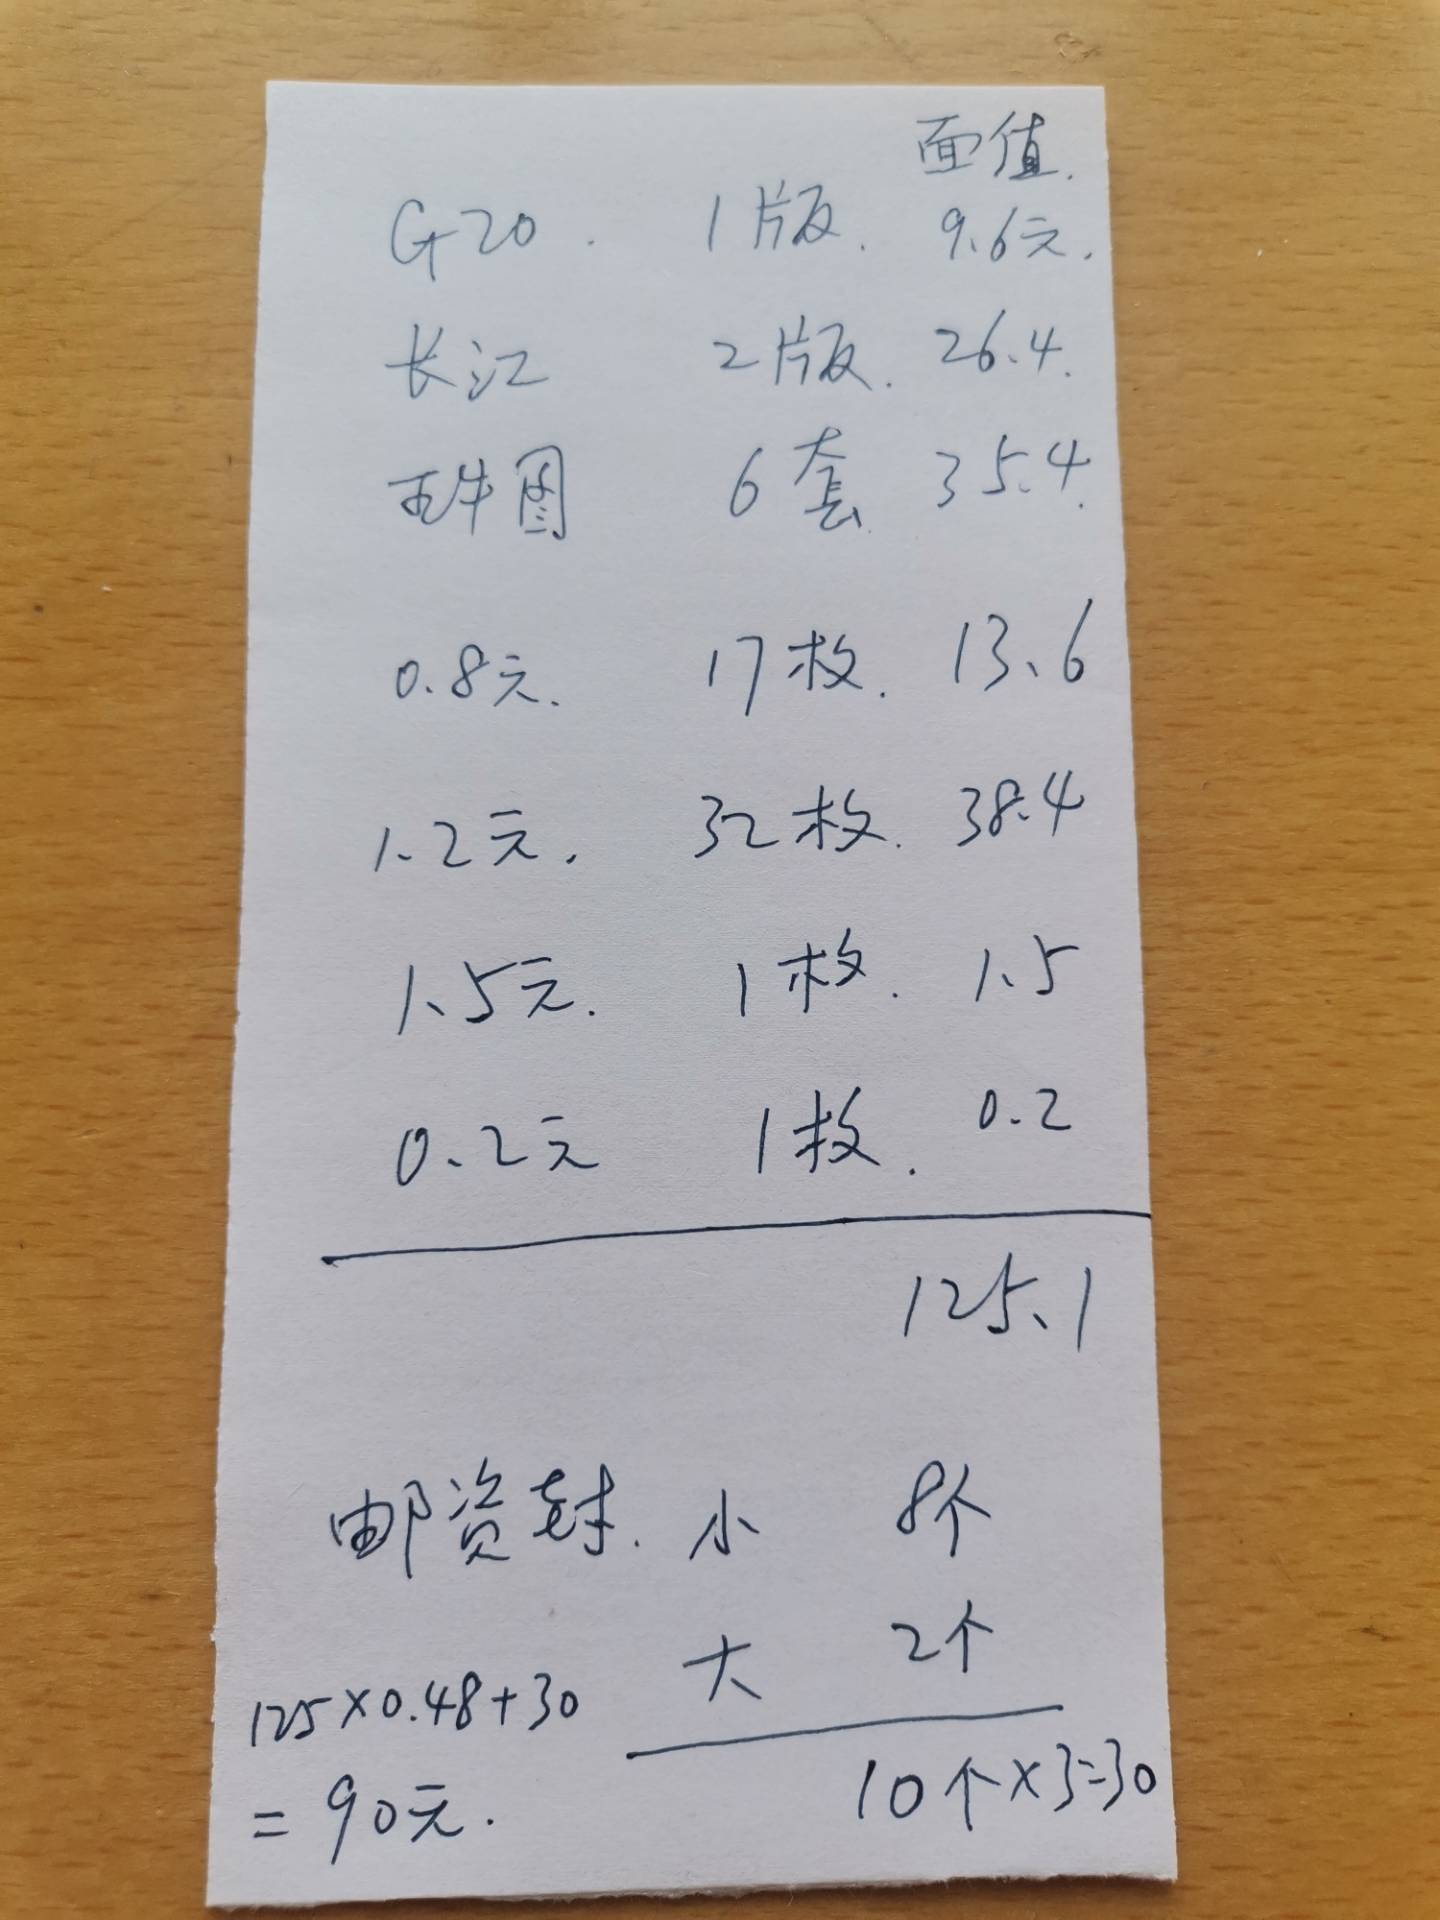 面值.
G20. 1版. 9.6元.
长江 2版. 26.4.
五牛图 6套. 35.4.
0.8元. 17枚. 13.6
1.2元. 32枚. 38.4
1.5元. 1枚. 1.5
0.2元 1枚. 0.2
125.1
邮资封. 小 8个
大 2个
10个×3=30
125×0.48+30
=90元.